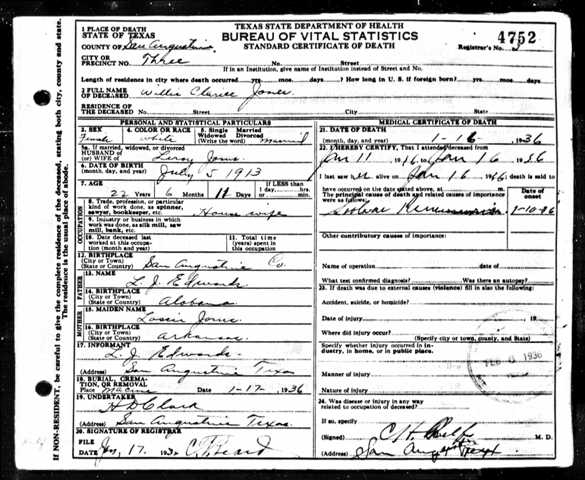 TEXAS STATE DEPARTMENT OF HEALTH
BUREAU OF VITAL STATISTICS
STANDARD CERTIFICATE OF DEATH
4752
Registrar's No. 3
1 PLACE OF DEATH
STATE OF TEXAS
COUNTY OF San Augustine
CITY OR PRECINCT NO. Three No. Street
If in an Institution, give name of Institution instead of Street and No.
Length of residence in city where death occurred yrs. mos. days? How long in U. S. if foreign born? yrs. mos. days?
2 FULL NAME OF DECEASED Willie Jones
RESIDENCE OF THE DECEASED No. Street City State
PERSONAL AND STATISTICAL PARTICULARS
3. SEX female
4. COLOR OR RACE white
5. Single Married Widowed Divorced (Write the word) Married
5a. If married, widowed, or divorced HUSBAND OF (or) WIFE OF Leroy Jones
6. DATE OF BIRTH (month, day, and year) July 5 1913
7. AGE 22 Years 6 Months 11 Days If LESS than 1 day
OCCUPATION
8. Trade, profession, or particular kind of work done, as spinner, sawyer, bookkeeper, etc. House wife
9. Industry or business in which work was done, as silk mill, saw mill, bank, etc.
10. Date deceased last worked at this occupation (month and year)
11. Total time (years) spent in this occupation
12. BIRTHPLACE (City or Town) (State or Country) San Augustine Co.
FATHER
13. NAME L. J. Edwards
14. BIRTHPLACE (City or Town) (State or Country) Alabama
MOTHER
15. MAIDEN NAME Jones
16. BIRTHPLACE (City or Town) (State or Country) Arkansas
17. INFORMANT L. J. Edwards
(Address) San Augustine Texas
18. BURIAL, CREMATION, OR REMOVAL
Place Date 1-17 1936
19. UNDERTAKER H D Clark
(Address) San Augustine Texas.
20. SIGNATURE OF REGISTRAR
FILE DATE Jan 17, 193 C. T. Beard
MEDICAL CERTIFICATE OF DEATH
21. DATE OF DEATH (month, day, and year) 1-16- 1936
22. I HEREBY CERTIFY, That I attended deceased from
Jan 11 to Jan 16
I last saw alive on Jan 16 death is said to
have occurred on the date stated above, at m.
The principal cause of death and related causes of importance were as follows:
Lobar Date of onset 1-10-36
Other contributory causes of importance:
Name of operation
What test confirmed diagnosis? Was there an autopsy?
23. If death was due to external causes (violence) fill in also the following:
Accident, suicide, or homicide?
Date of injury 19
Where did injury occur?
(Specify city or town, county, and State)
Specify whether injury occurred in industry, in home, or in public place.
Manner of injury
Nature of injury
FEB 1936
24. Was disease or injury in any way related to occupation of deceased?
If so, specify
(Signed) M. D.
(Address) San Augustine Texas
IF NON-RESIDENT, be careful to give the complete residence of the deceased, stating both city, county and state. The residence is the usual place of abode.